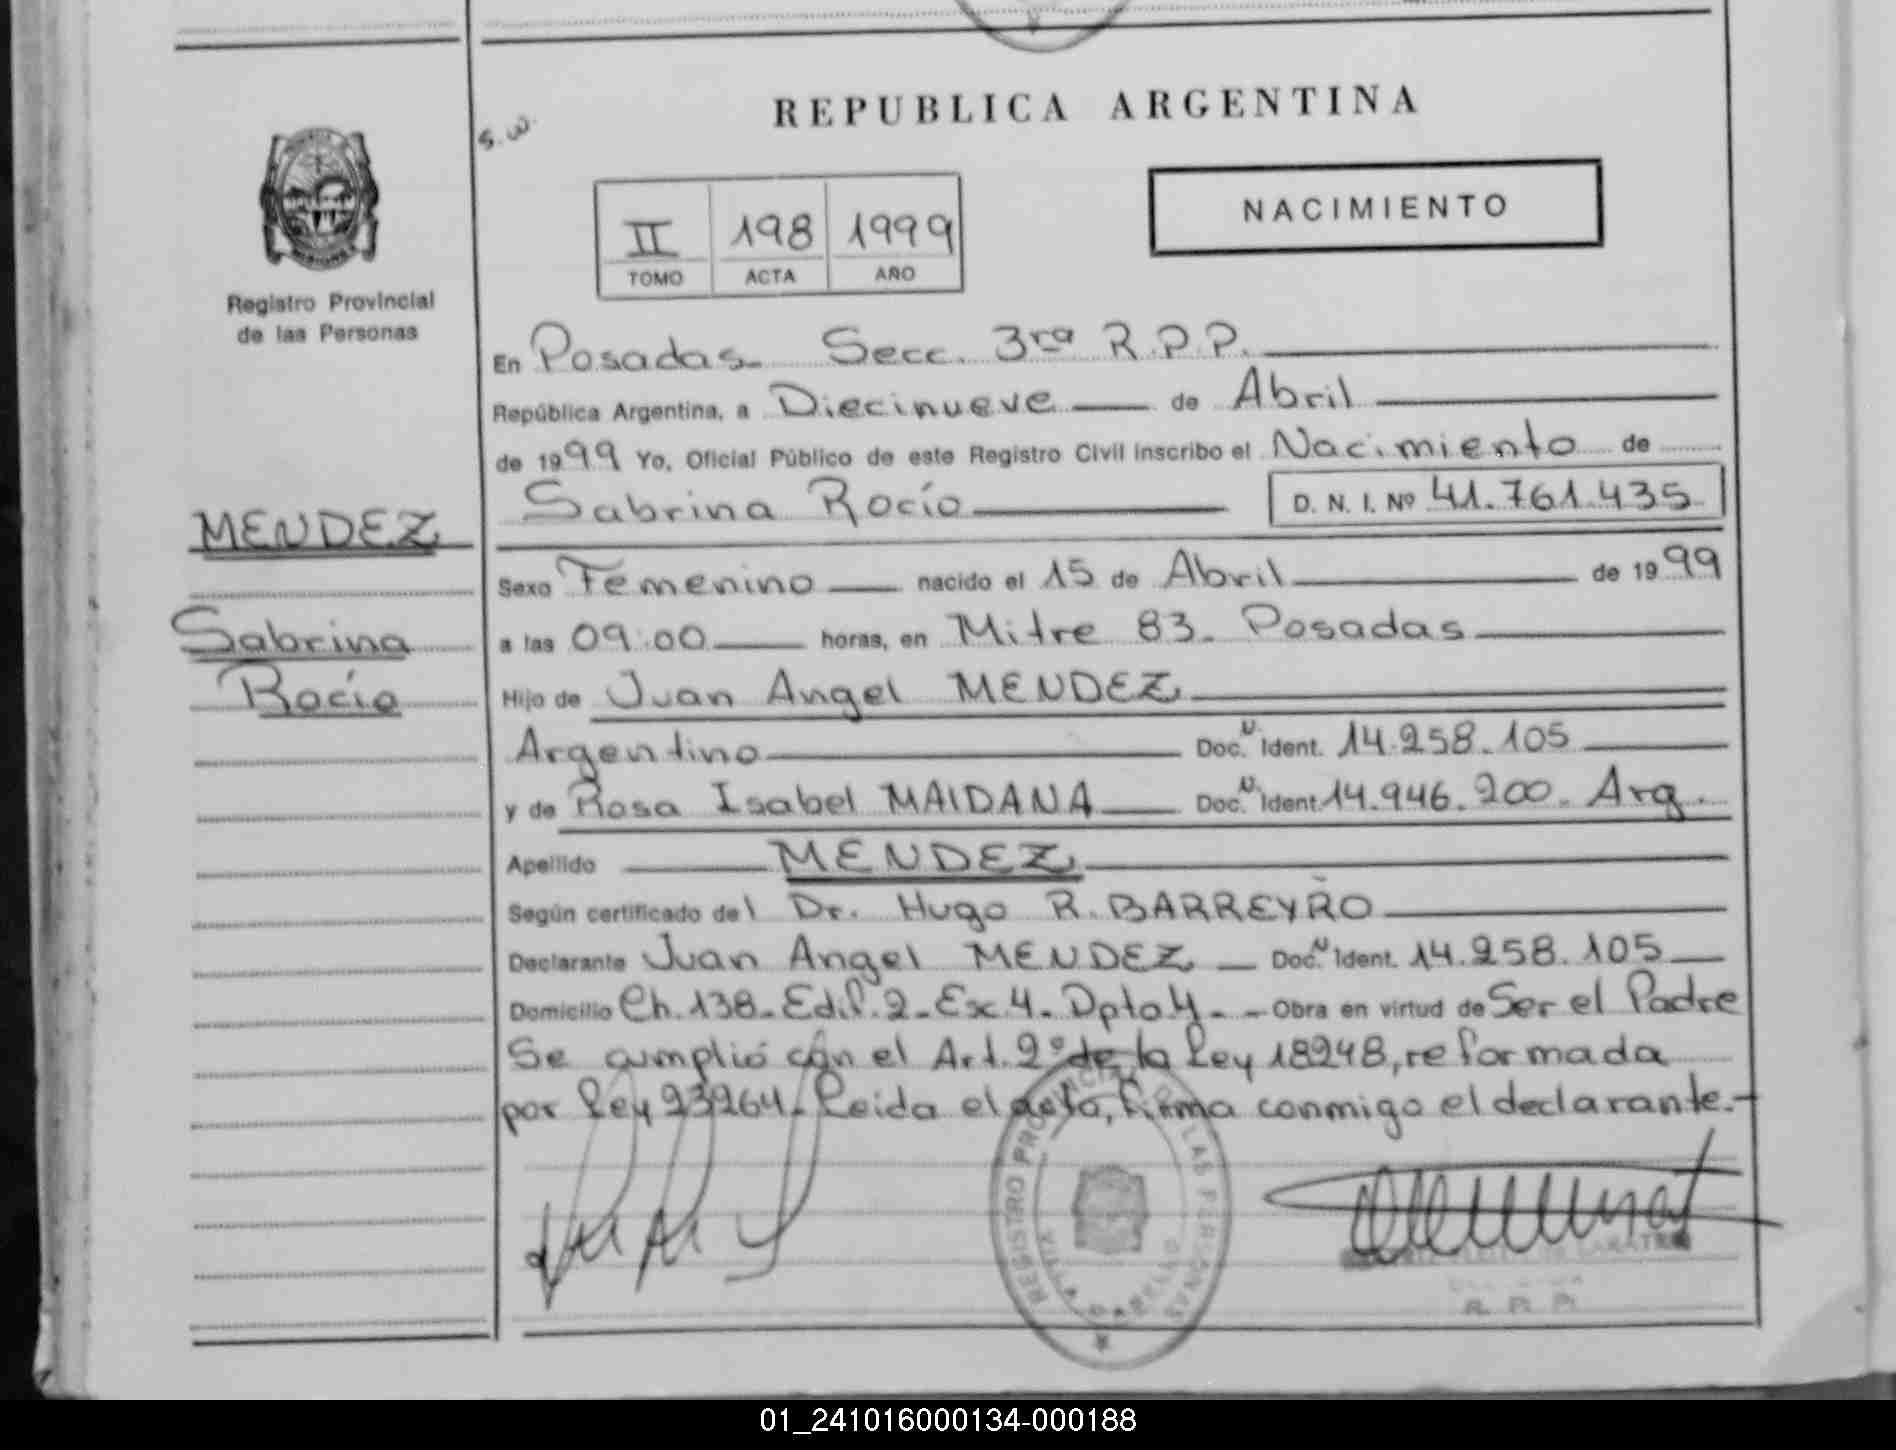 REPUBLICA ARGENTINA
S.W.
NACIMIENTO
II 198 1999
TOMO ACTA AÑO
Registro Provincial
de las Personas
En Posadas. Secc. 3ra R.P.P.
República Argentina, a Diecinueve de Abril
de 1999 Yo, Oficial Público de este Registro Civil inscribo el Nacimiento de
Sabrina Rocío D. N. I. Nº 41.761.435
MENDEZ
Sexo Femenino nacido el 15 de Abril de 1999
Sabrina
a las 09:00 horas, en Mitre 83. Posadas
Rocío
Hijo de Juan Angel MENDEZ
Argentino Doc. N Ident. 14.258.105
y de Rosa Isabel MAIDANA Doc. N Ident. 14.946.200. Arg.
Apellido MENDEZ
Según certificado del Dr. Hugo R. BARREYRO
Declarante Juan Angel MENDEZ Doc. N Ident. 14.258.105
Domicilio Ch. 138. Edif. 2. Esc. 4. Dpto 4. Obra en virtud de Ser el Padre
Se cumplió con el Art. 2º de la Ley 18248, reformada
por Ley 23264. Leida el acta, firma conmigo el declarante.-
REGISTRO PROVINCIAL DE LAS PERSONAS
VILLA CABELLO
R. P. P.
01_241016000134-000188